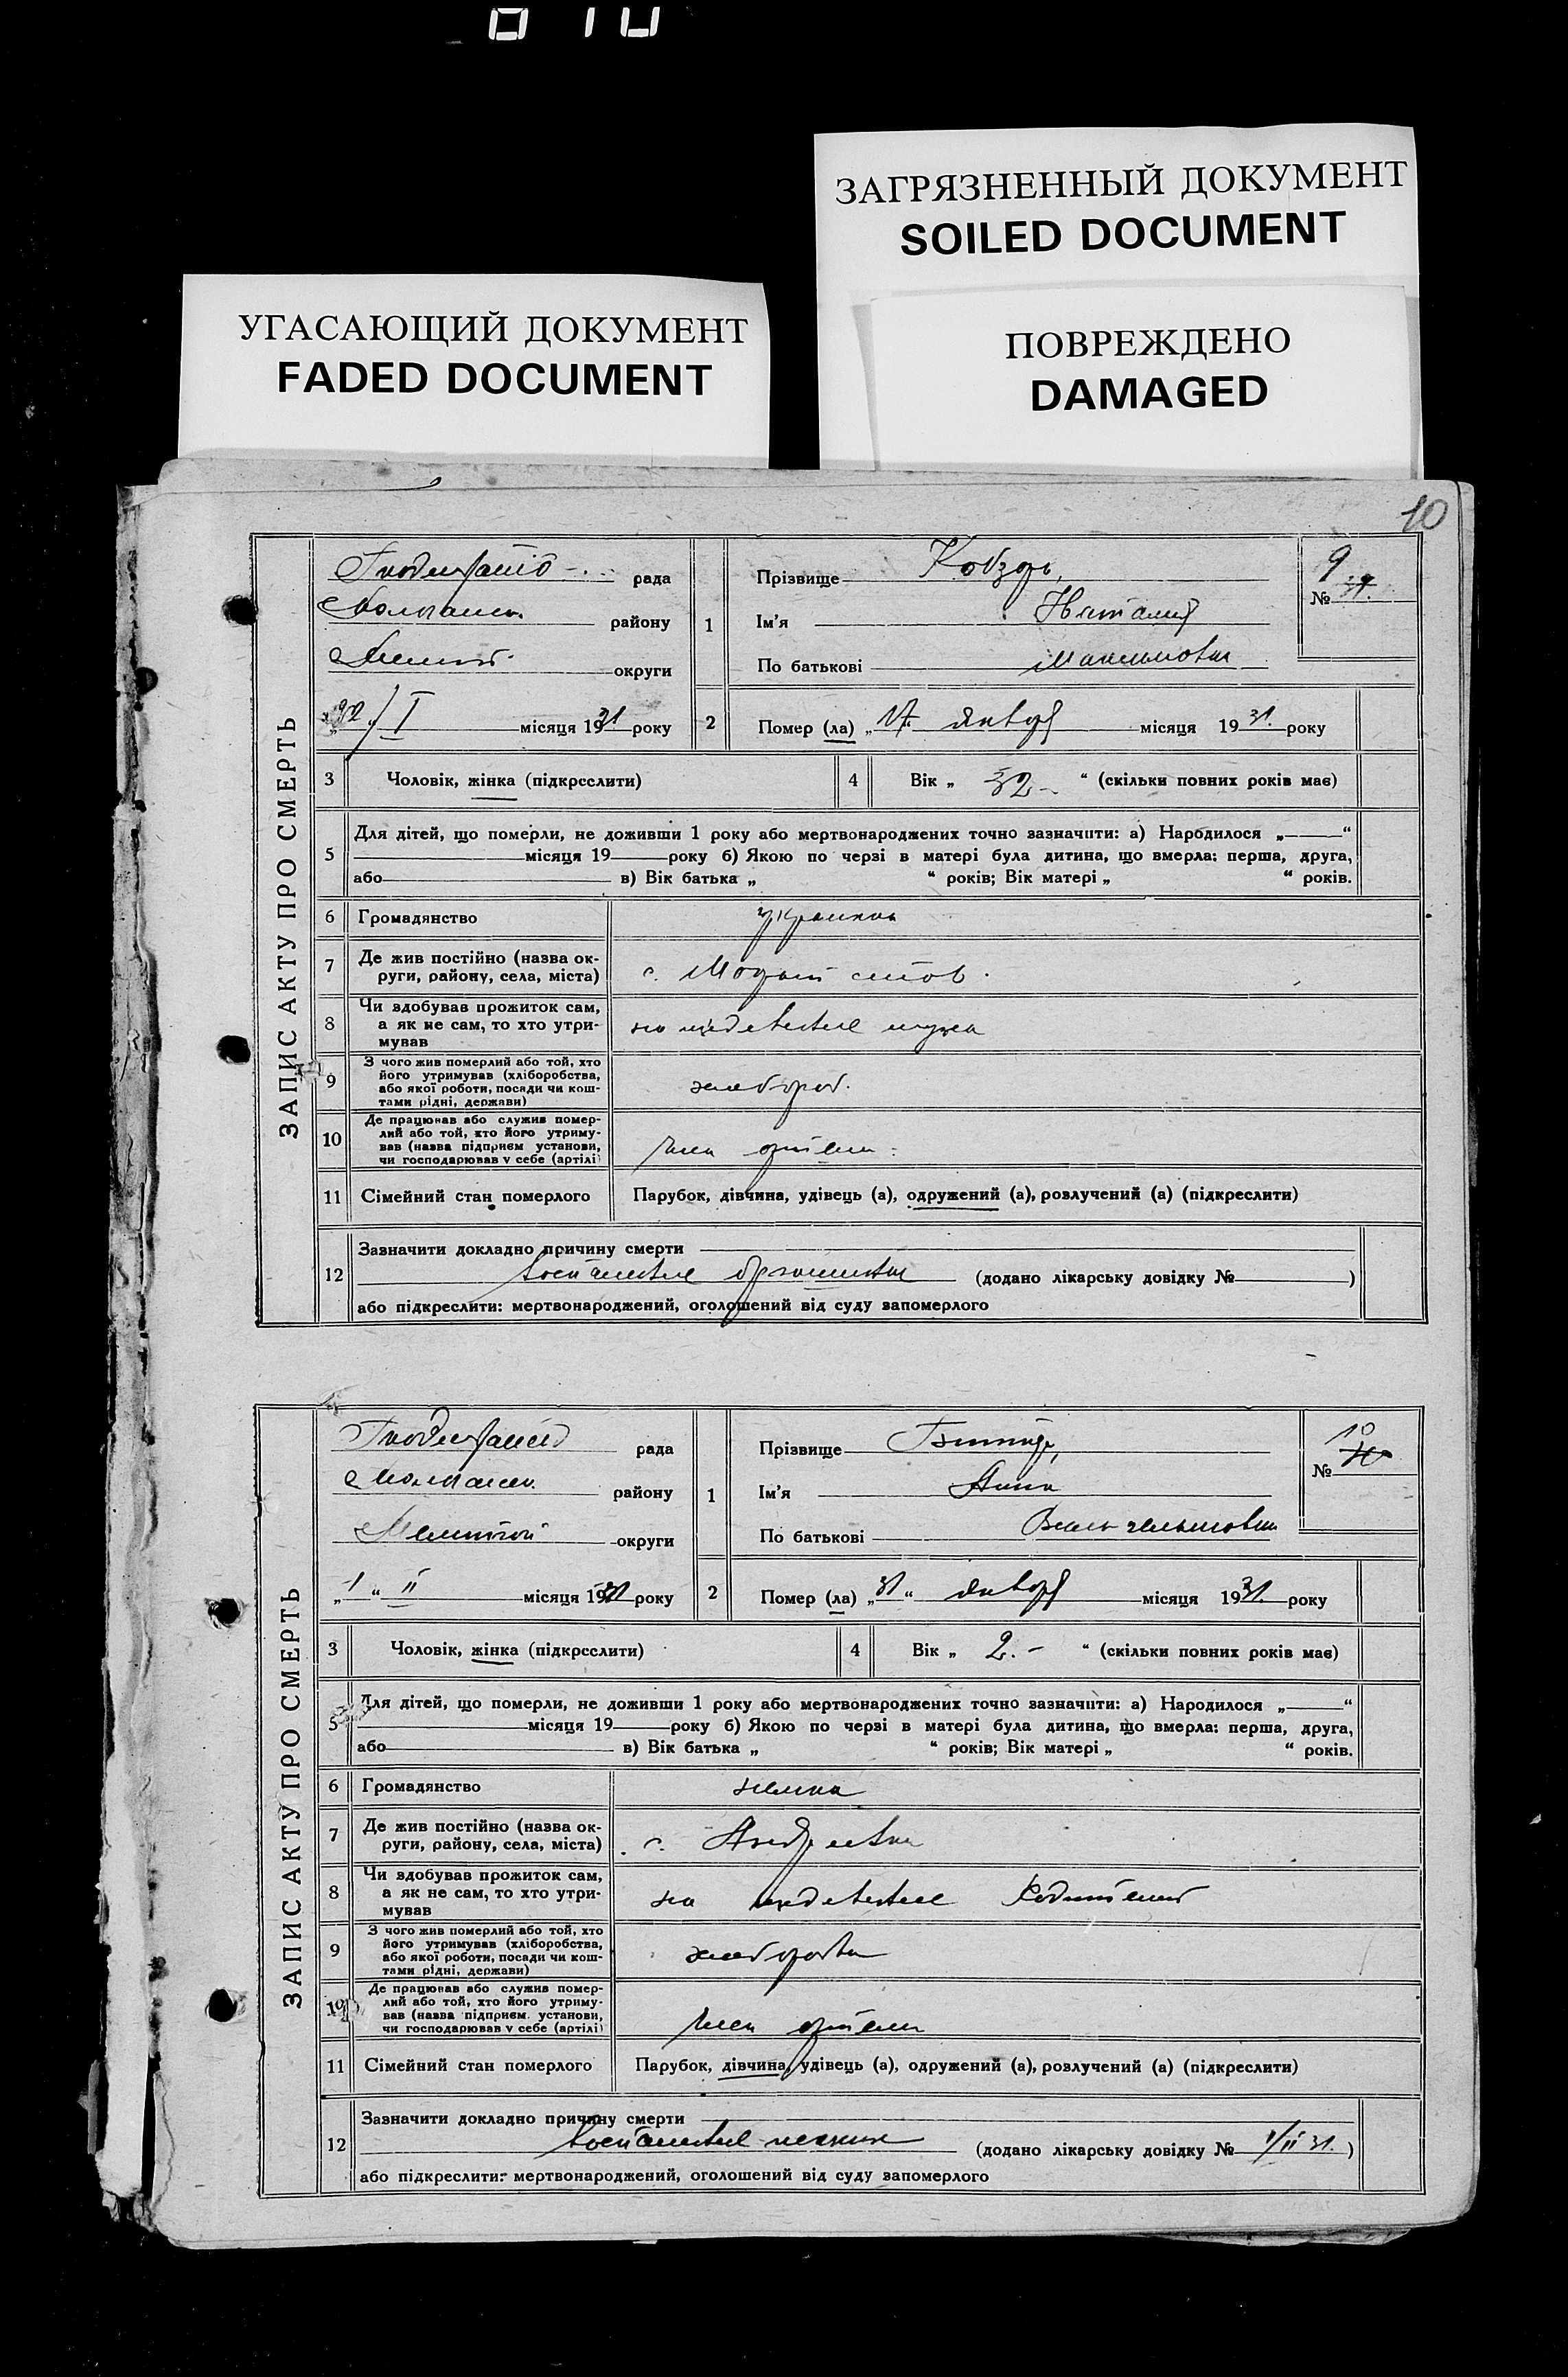 010
ЗАГРЯЗНЕННЫЙ ДОКУМЕНТ
SOILED DOCUMENT
УГАСАЮЩИЙ ДОКУМЕНТ
FADED DOCUMENT
ПОВРЕЖДЕНО
DAMAGED
10
ЗАПИС АКТУ ПРО СМЕРТЬ
рада
району
округи
/ I місяця 1931 року
1
Прізвище Кобзарь
Ім'я Наталия
По батькові
9
№ 39.
2
Помер (ла) „17“ января місяця 1931 року
3
Чоловік, жінка (підкреслити)
4
Вік „ 32 “ (скільки повних років має)
5
Для дітей, що померли, не доживши 1 року або мертвонароджених точно зазначити: а) Народилося „ “
місяця 19 року б) Якою по черзі в матері була дитина, що вмерла: перша, друга,
або в) Вік батька „ “ років; Вік матері „ “ років.
6
Громадянство
украинка
7
Де жив постійно (назва ок-
руги, району, села, міста)
с.
8
Чи здобував прожиток сам,
а як не сам, то хто утри-
мував
на иждевение мужа
9
З чого жив померлий або той, хто
його утримував (хліборобства,
або якої роботи, посади чи кош-
тами рідні, держави)
хлебороб.
10
Де працював або служив помер-
лий або той, хто його утриму-
вав (назва підприєм установи,
чи господарював у себе (артілі)
член артели
11
Сімейний стан померлого
Парубок, дівчина, удівець (а), одружений (а), розлучений (а) (підкреслити)
12
Зазначити докладно причину смерти
воспаление брюшины (додано лікарську довідку № )
або підкреслити: мертвонароджений, оголошений від суду запомерлого
ЗАПИС АКТУ ПРО СМЕРТЬ
рада
району
округи
„1“ II місяця 1931 року
1
Прізвище
Ім'я Анна
По батькові Вильгельмовна
10
№
2
Помер (ла) „31“ января місяця 1931. року
3
Чоловік, жінка (підкреслити)
4
Вік „ 2. – “ (скільки повних років має)
5
Для дітей, що померли, не доживши 1 року або мертвонароджених точно зазначити: а) Народилося „ “
місяця 19 року б) Якою по черзі в матері була дитина, що вмерла: перша, друга,
або в) Вік батька „ “ років; Вік матері „ “ років.
6
Громадянство
немка
7
Де жив постійно (назва ок-
руги, району, села, міста)
с. Андреевка
8
Чи здобував прожиток сам,
а як не сам, то хто утри-
мував
на иждевение Родителей
9
З чого жив померлий або той, хто
його утримував (хліборобства,
або якої роботи, посади чи кош-
тами рідні, держави)
10
Де працював або служив помер-
лий або той, хто його утриму-
вав (назва підприєм. установи,
чи господарював у себе (артілі)
член артели
11
Сімейний стан померлого
Парубок, дівчина, удівець (а), одружений (а), розлучений (а) (підкреслити)
12
Зазначити докладно причину смерти
воспаление легких (додано лікарську довідку № 1/II 31. )
або підкреслити: мертвонароджений, оголошений від суду запомерлого